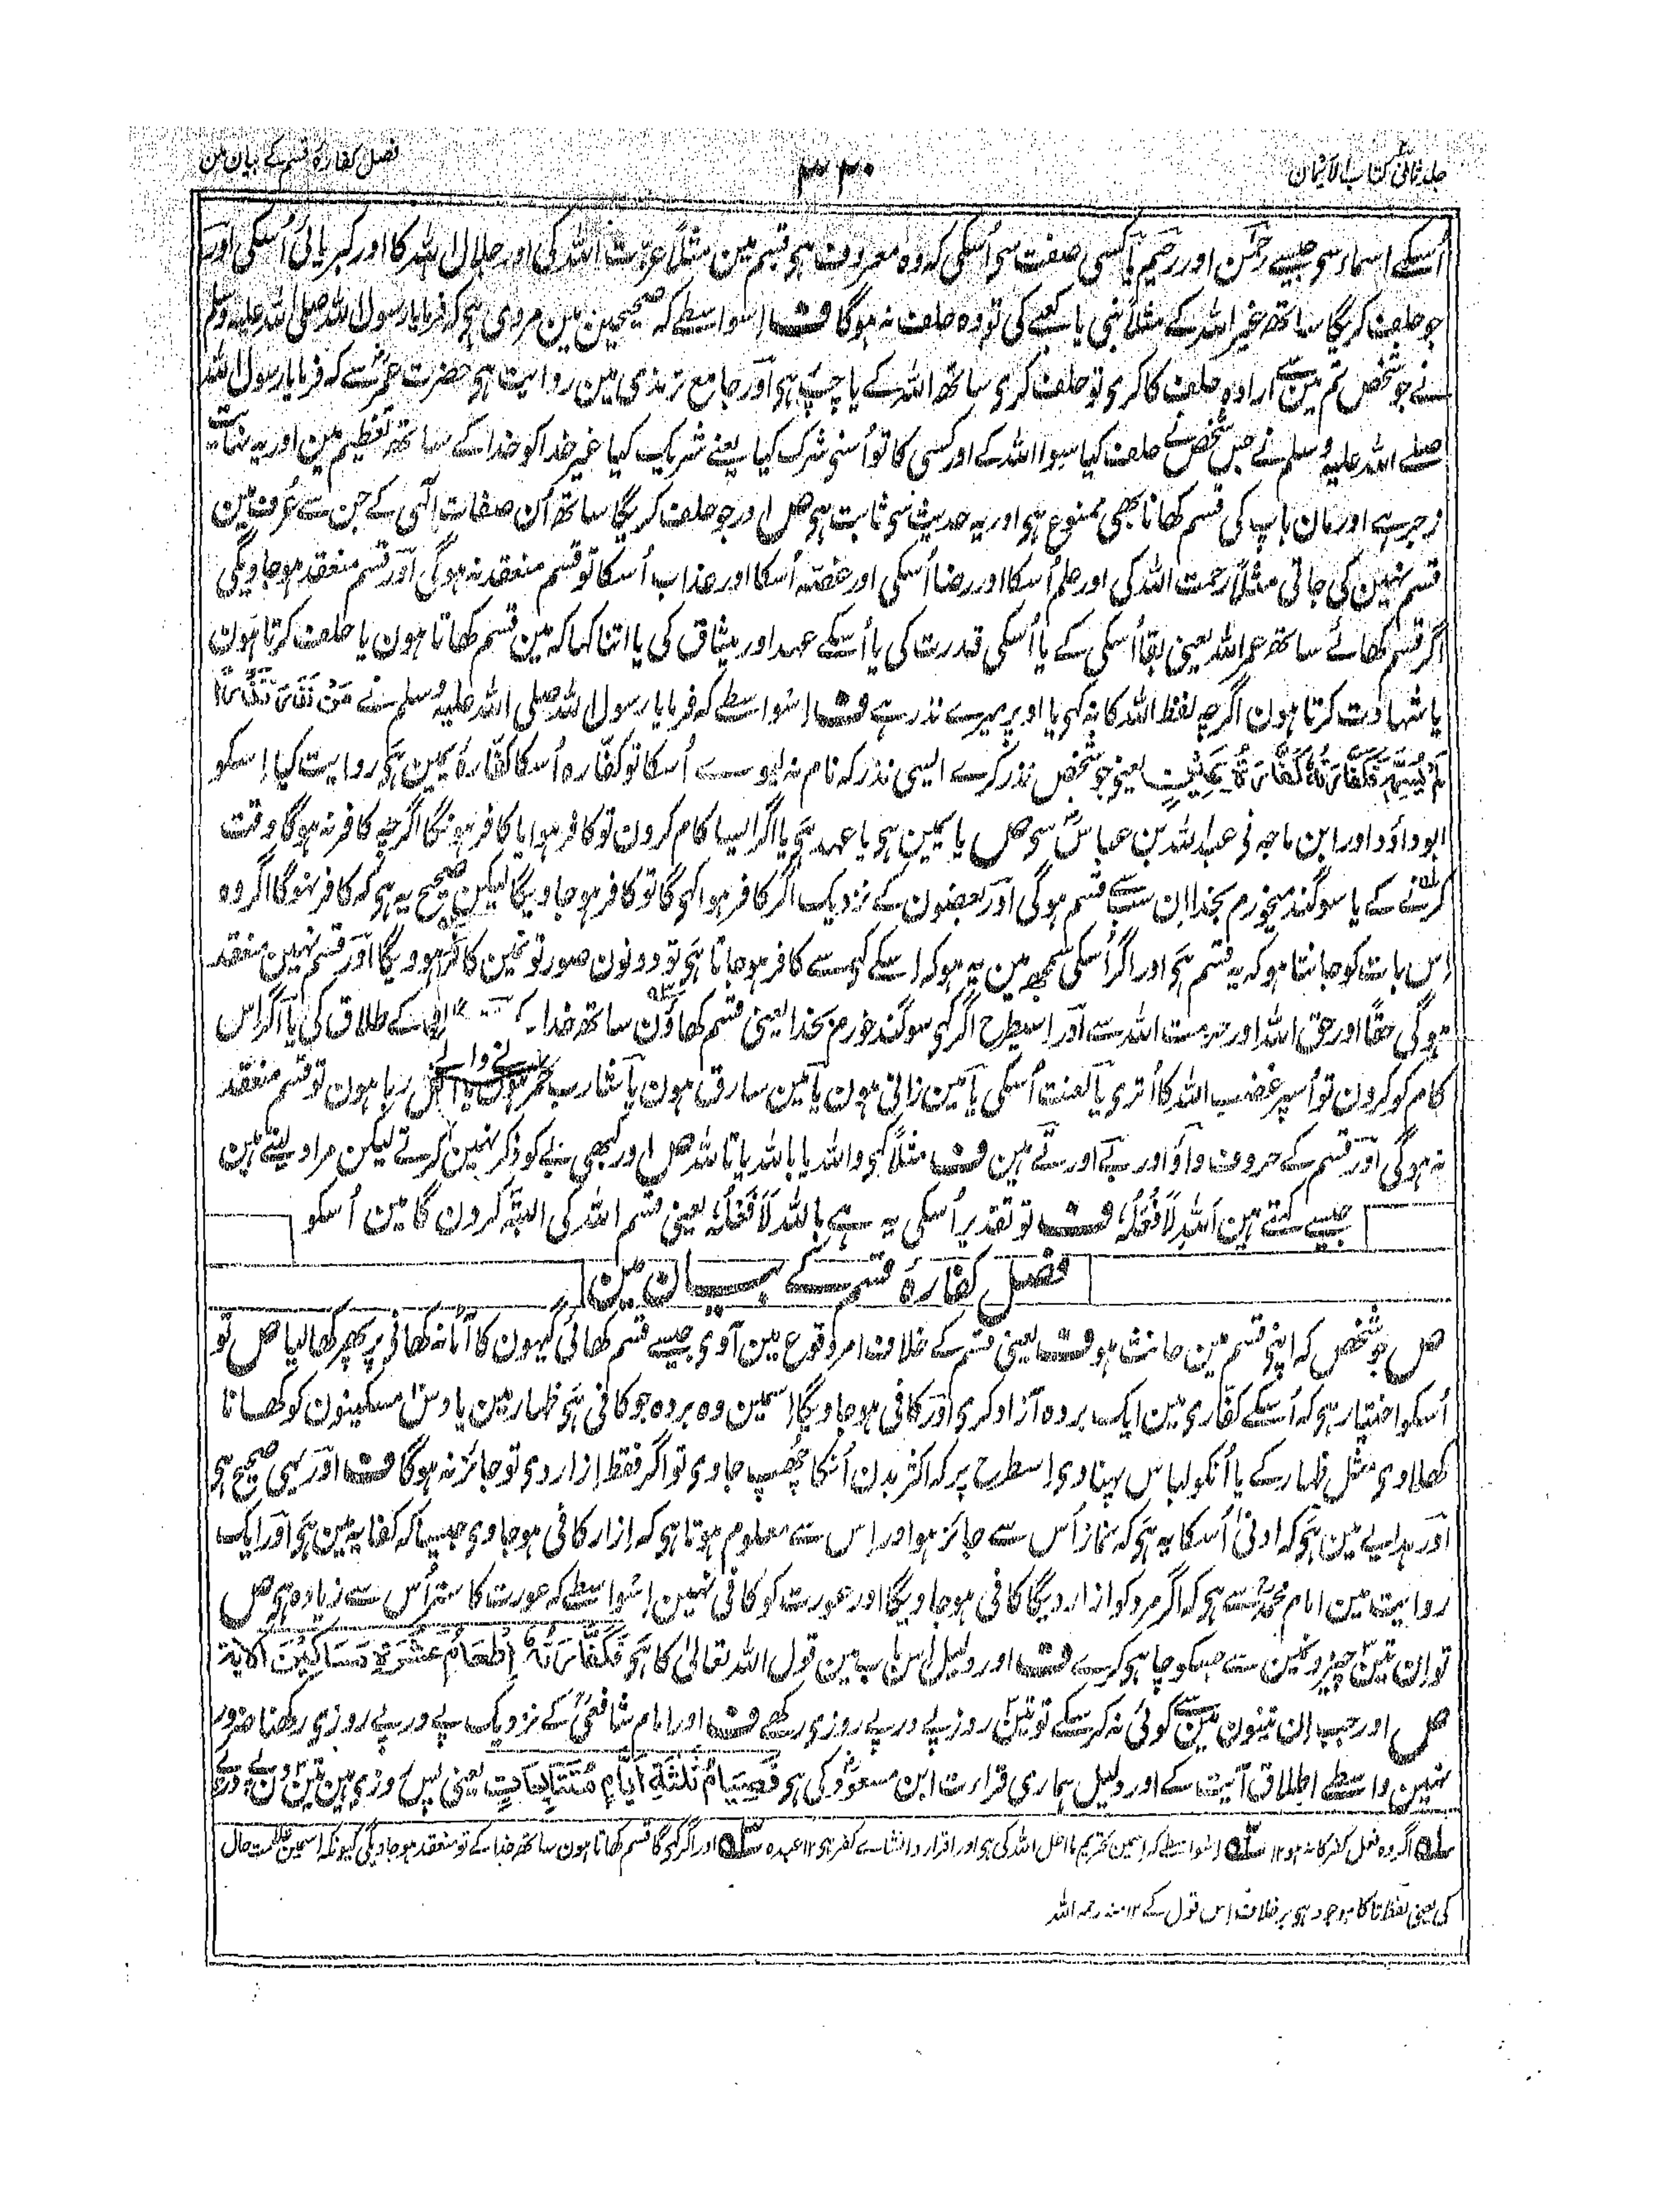 جلد ثانی کتاب الایمان
۳۳۰
فصل کفارہ قسم کے بیان مین
اُسکے اسماء سی جیسے رحمٰن اور رحیم یا کسی صفت سی اُسکی کہ وہ معروف ہی قسم مین مثلاً عزت اللہ کی اور جلال اللہ کا اور کبریائی اُسکی اور
جو حلف کریگا ساتھ غیر اللہ کے مثلاً نبی یا کعبے کی تو وہ حلف نہ ہوگا ف اِسواسطے کہ صحیحین مین مروی ہی کہ فرمایا رسول اللہ صلی اللہ علیہ وسلم
نے جو شخص تم مین سے ارادہ حلف کا کری تو حلف کری ساتھ اللہ کے یا چپ ہی اور جامع ترمذی مین روایت ہی حضرت عمرؓ سے کہ فرمایا رسول اللہ
صلے اللہ علیہ وسلم نے جس شخص نے حلف کیا سوا اللہ کے اور کسی کا تو اُسنی شرک کیا یعنے شریک کیا غیر خدا کو خدا کے ساتھ تعظیم مین اور یہ نہایت
زجر ہے اور مان باپ کی قسم کھانا بھی ممنوع ہی اور یہ حدیث سی ثابت ہی ص اور جو حلف کریگا ساتھ اُن صفات الٰہی کے جن سے عُرف مین
قسم نہین کی جاتی مثلاً رحمت اللہ کی اور علم اُسکا اور رضا اُسکی اور غصہ اُسکا اور عذاب اُسکا تو قسم منعقد نہ ہوگی اور قسم منعقد ہو جاویگی
اگر قسم کھائے ساتھ عمر اللہ یعنی بقا اُسکی کے یا اُسکی قدرت کی یا اُسکے عہد اور میثاق کی یا اتنا کہا کہ مین قسم کھاتا ہون یا حلف کرتا ہون
یا شہادت کرتا ہون اگرچہ لفظ اللہ کا نہ کہی یا اوپر میرے نذر ہے ف اِسواسطے کہ فرمایا رسول اللہ صلی اللہ علیہ وسلم نے مَنْ نَذَرَ نَذْرًا
لَمْ يُسَمِّهِ فَكَفَّارَتُهُ كَفَّارَةُ يَمِيْنٍ یعنی جو شخص نذر کرے ایسی نذر کہ نام نہ لیوے اُسکا تو کفارہ اُسکا کفارۂ یمین ہی روایت کیا اِسکو
ابو داؤد اور ابن ماجہ نی عبداللہ بن عباسؓ سی ص یا یمین ہی یا عہد ہی یا اگر ایسا کام کرون تو کافر ہوا یا کافر ہونگا اگرچہ کافر نہ ہوگا وقت
کرنے کے یا سوگند میخورم بخدا اِن سب سے قسم ہوگی اور بعضون کے نزدیک اگر کافر ہوا کہی گا تو کافر ہو جاویگا لیکن صحیح یہ ہی کہ کافر نہوگا اگر وہ
اِس بات کو جانتا ہو کہ یہ قسم ہی اور اگر اُسکی سمجھ مین یہ ہو کہ اِسکے کہی سے کافر ہو جاتا ہی تو دونون صورتونمین کافر ہوویگا اور قسم نہین منعقد
ہوگی حقا اور حق اللہ اور حرمت اللہ سے اور اِسیطرح اگر کہی سوگند خورم بخدا یعنی قسم کھاؤن ساتھ خدا کے طلاق کی یا اگر اس
کام کو کرون تو اُسپر غضب اللہ کا اُتری یا لعنت اُسکی یا مین زانی ہون یا مین سارق ہون یا شارب خمر ہون یا رہا ہون تو قسم منعقد
نہ ہوگی اور قسم کے حروف واو اور بے اور تے ہین ف مثلاً کہی واللہ یا باللہ یا تاللہ ص اور کبھی بے کو ذکر نہین کرتے لیکن مراد لیتے ہین
جیسے کہتے ہین اَللّٰهِ لَأَفْعَلَنَّهُ ف تو تقدیر اُسکی یہ ہے بِاللّٰهِ لَأَفْعَلَنَّهُ یعنی قسم اللہ کی البتہ کرون گا مین اُسکو
فصل کفارۂ قسم کے بیان مین
ص جو شخص کہ اپنی قسم مین حانث ہو ف یعنی قسم کے خلاف امر وقوع مین آوی جیسے قسم کھائی گیہون کا آٹا نہ کھانی پر پھر کھا لیا ص تو
اُسکو اختیار ہی کہ اُسکے کفاری مین ایک بردہ آزاد کری اور کافی ہو جاویگا اِسمین وہ بردہ جو کافی ہی ظہار مین یا دس مسکینون کو کھانا
کھلاوی مثل ظہار کے یا اُنکو لباس پہناوی اِسطرح پر کہ اکثر بدن اُنکا چھپ جاوی تو اگر فقط اِزار دی تو جائز نہ ہوگا ف اور یہی صحیح ہی
اور ہدایے مین ہی کہ ادنیٰ اُسکا یہ ہی کہ نماز اُس سے جائز ہو اور اِس سے معلوم ہوتا ہی کہ اِزار کافی ہو جاوی جیسا کہ کفایہ مین ہی اور ایک
روایت مین امام محمدؒ سے ہی کہ اگر مرد کو ازار دیگا کافی ہو جاویگا اور عورت کو کافی نہین اِسواسطے کہ عورت کا ستر اُس سے زیادہ ہی ص
تو اِن تین چیزونمین سے جسکو چاہی کرے ف اور دلیل اس باب مین قول اللہ تعالیٰ کا ہی فَكَفَّارَتُهٗ اِطْعَامُ عَشَرَةِ مَسَاكِيْنَ الآية
ص اور جب اِن تینون مین سے کوئی نہ کر سکے تو تین روز پے در پے روزی رکھے ف اور امام شافعیؒ کے نزدیک پے در پے روزی رکھنا ضرور
نہین واسطے اطلاق آیت کے اور دلیل ہماری قراءت ابن مسعودؓ کی ہی فَصِيَامُ ثَلٰثَةِ اَيَّامٍ مُتَتَابِعَاتٍ یعنی پس روزی ہین تین دن پے در پے
لہ اگر وہ فعل کفر کا نہ ہو ۱۲ ۲ہ اِسواسطے کہ اِسمین تحریم ما احل اللہ کی ہی اور اقرار و انشاء کفر ہی ۱۲ عبدہ ۳ہ اور اگر کہی گا قسم کھاتا ہون ساتھ خدا کے تو منعقد ہو جاویگی کیونکہ اسمین علامت حال
کی یعنی لفظ تا کا موجود ہی برخلاف اِس قول کے ۱۲ منہ رحمہ اللہ